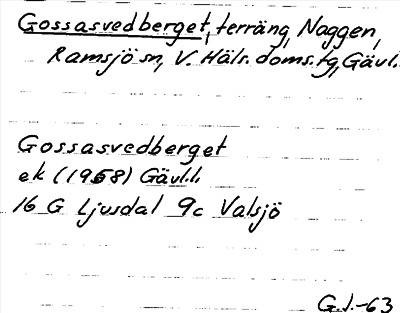 Gossasvedberget, terräng, Naggen,
Ramsjö sn, V. Häls. doms. tg, Gävl.
Gossasvedberget
ek (1968) Gävl.l.
16 G Ljusdal 9c Valsjö
G.J.-63